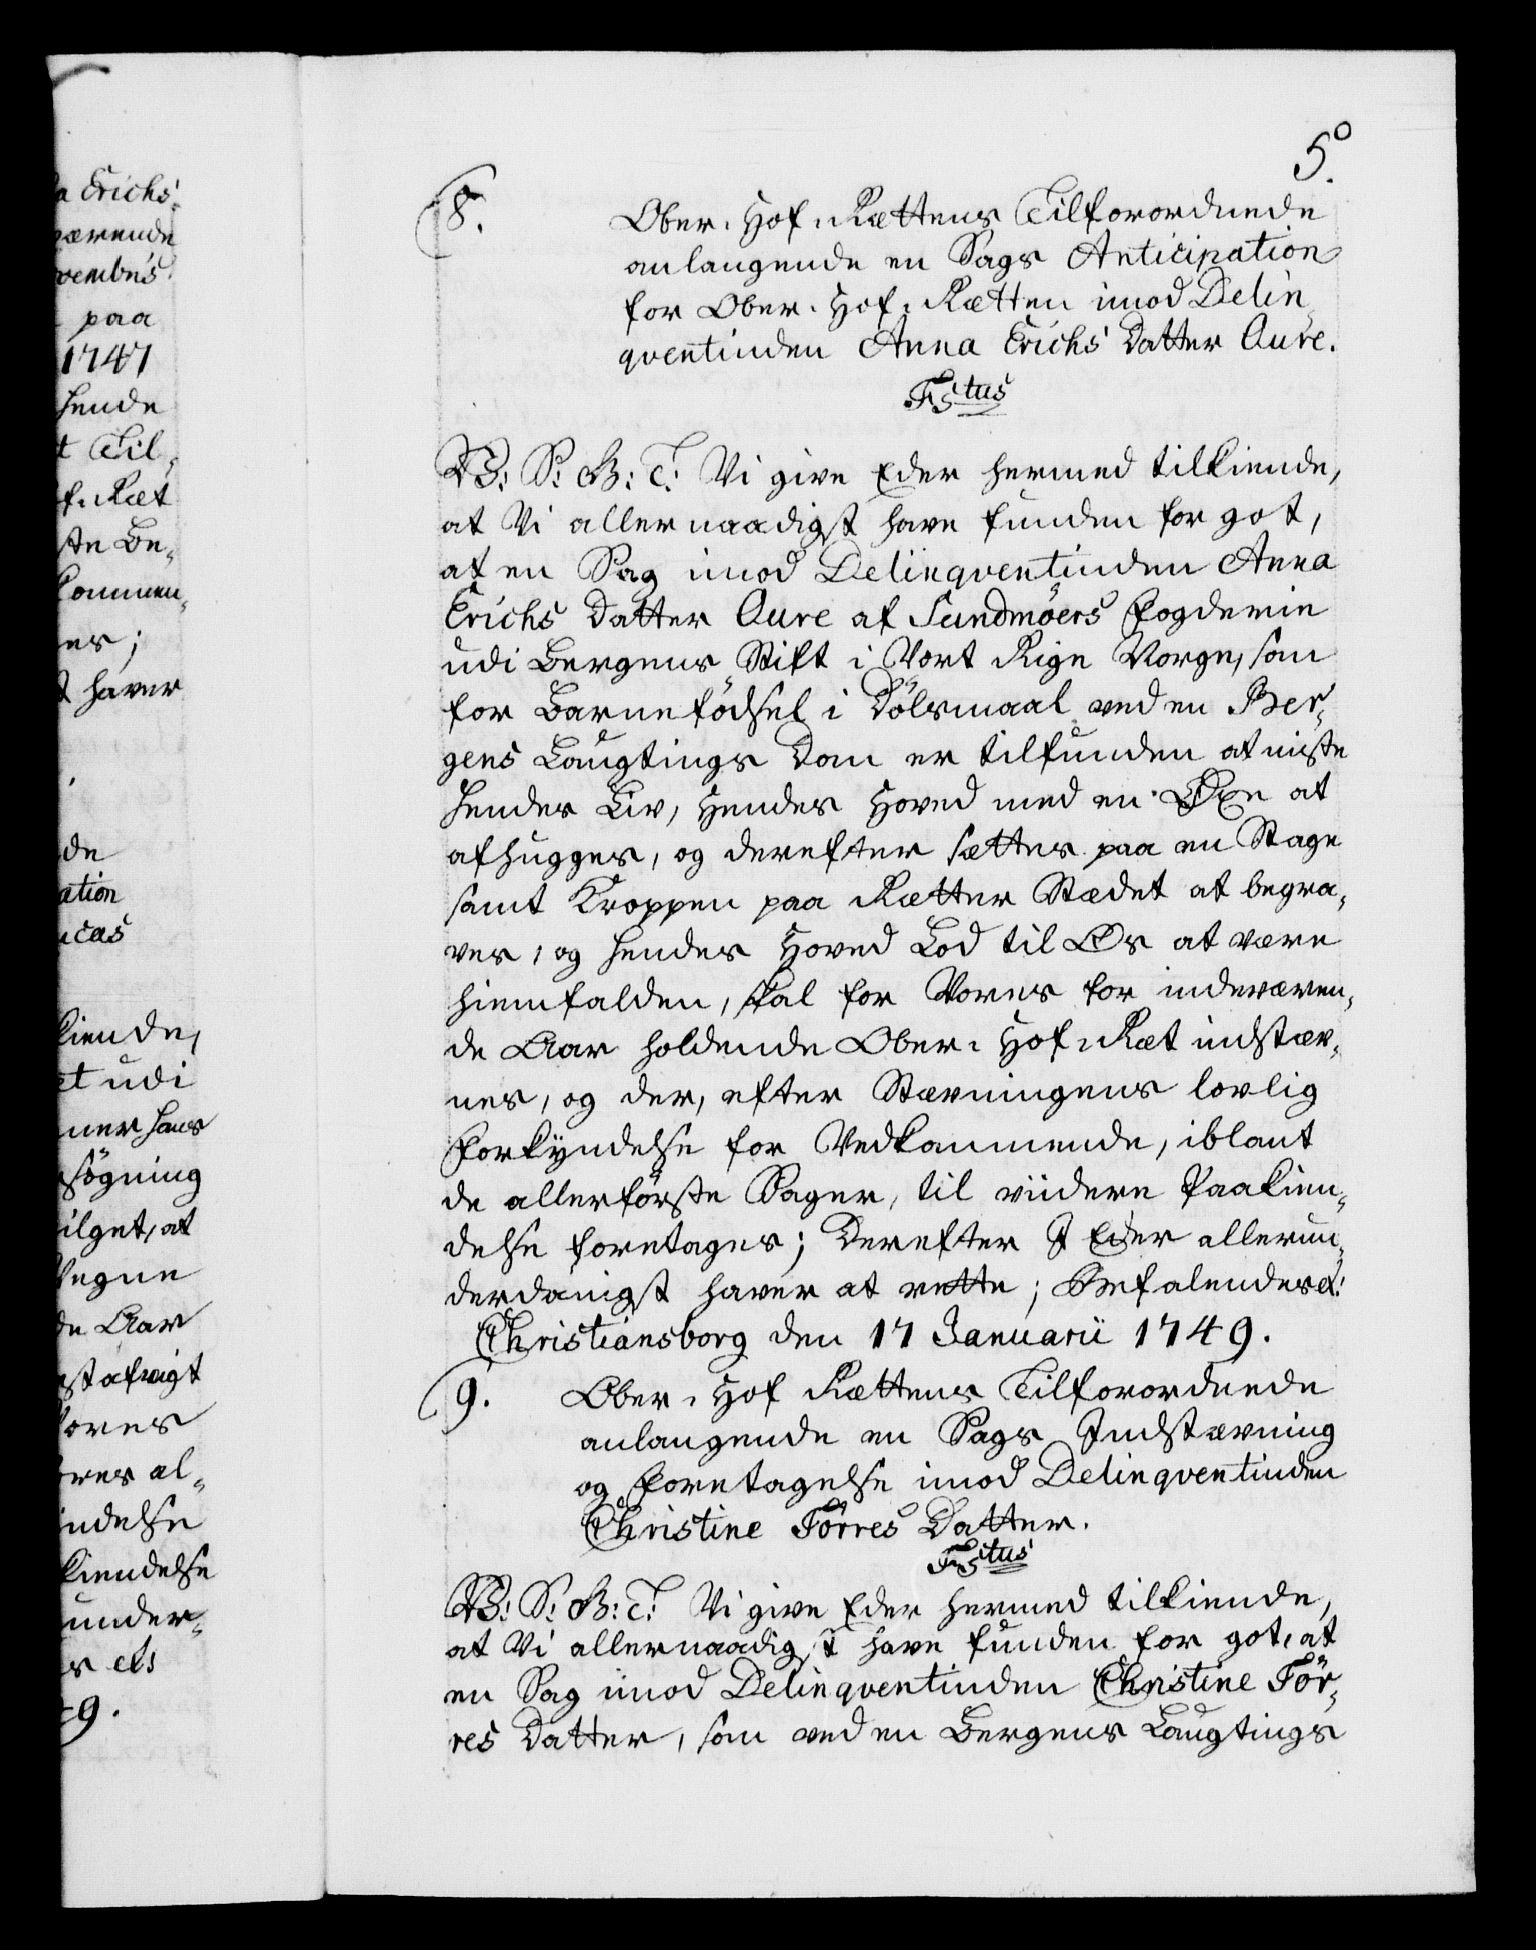 a Erichs
værende
vembris
paa
1747
hende
t Til-
f. Ræt
ste Be-
kommen-
es;
t haver
de
ation
ucas
kiende,
et udi
ner hans
søgning
ilget, at
Vegne
de Aar
st afvigt
Vores
ores al-
indelse
kiendelse
under-
s etc
49.
5.
8.
Ober-Hof-Rættens Tilforordnede
anlangende en Sags Anticipation
for Ober-Hof-Rætten imod Delin-
qventinden Anna Erichs Datter Aure.
F5tus
W: S: G: T: Vi give Eder hermed tilkiende,
at Vi allernaadigst have funden for got,
at en Sag imod Delinqventinden Anna
Erichs Datter Aure af Sundmöers Fogderie
udi Bergens Stift i Vort Rige Norge, som
for Barnefödsel i Dölsmaal ved en Ber-
gens Laugtings Dom er tilfunden at miste
hendes Liv, Hendes Hoved med en Öxe at
afhugges, og derefter sættes paa en Stage
samt Kroppen paa Rætter Stædet at begra-
ves, og hendes Hoved Lod til Os at være
hiemfalden, skal for Vores for indeværen-
de Aar holdende Ober-Hof-Ræt indstæv-
nes, og der, efter Stævningens lovlig
Forkyndelse for Vedkommende, iblant
de allerförste Sager, til viidere Paakien-
delse foretages; Derefter I Eder allerun-
derdanigst haver at rette; Befalendes etc:
Christiansborg den 17 Januarii 1749.
9.
Ober-Hof Rættens Tilforordnede
anlangende en Sags Indstævning
og Foretagelse imod Delinqventinden
Christine Törres Datter.
F5tus
W: S: G: T: Vi give Eder hermed tilkiende,
at Vi allernaadigst have funden for got, at
en Sag imod Delinqventinden Christine Tör-
res Datter, som ved en Bergens Laugtings